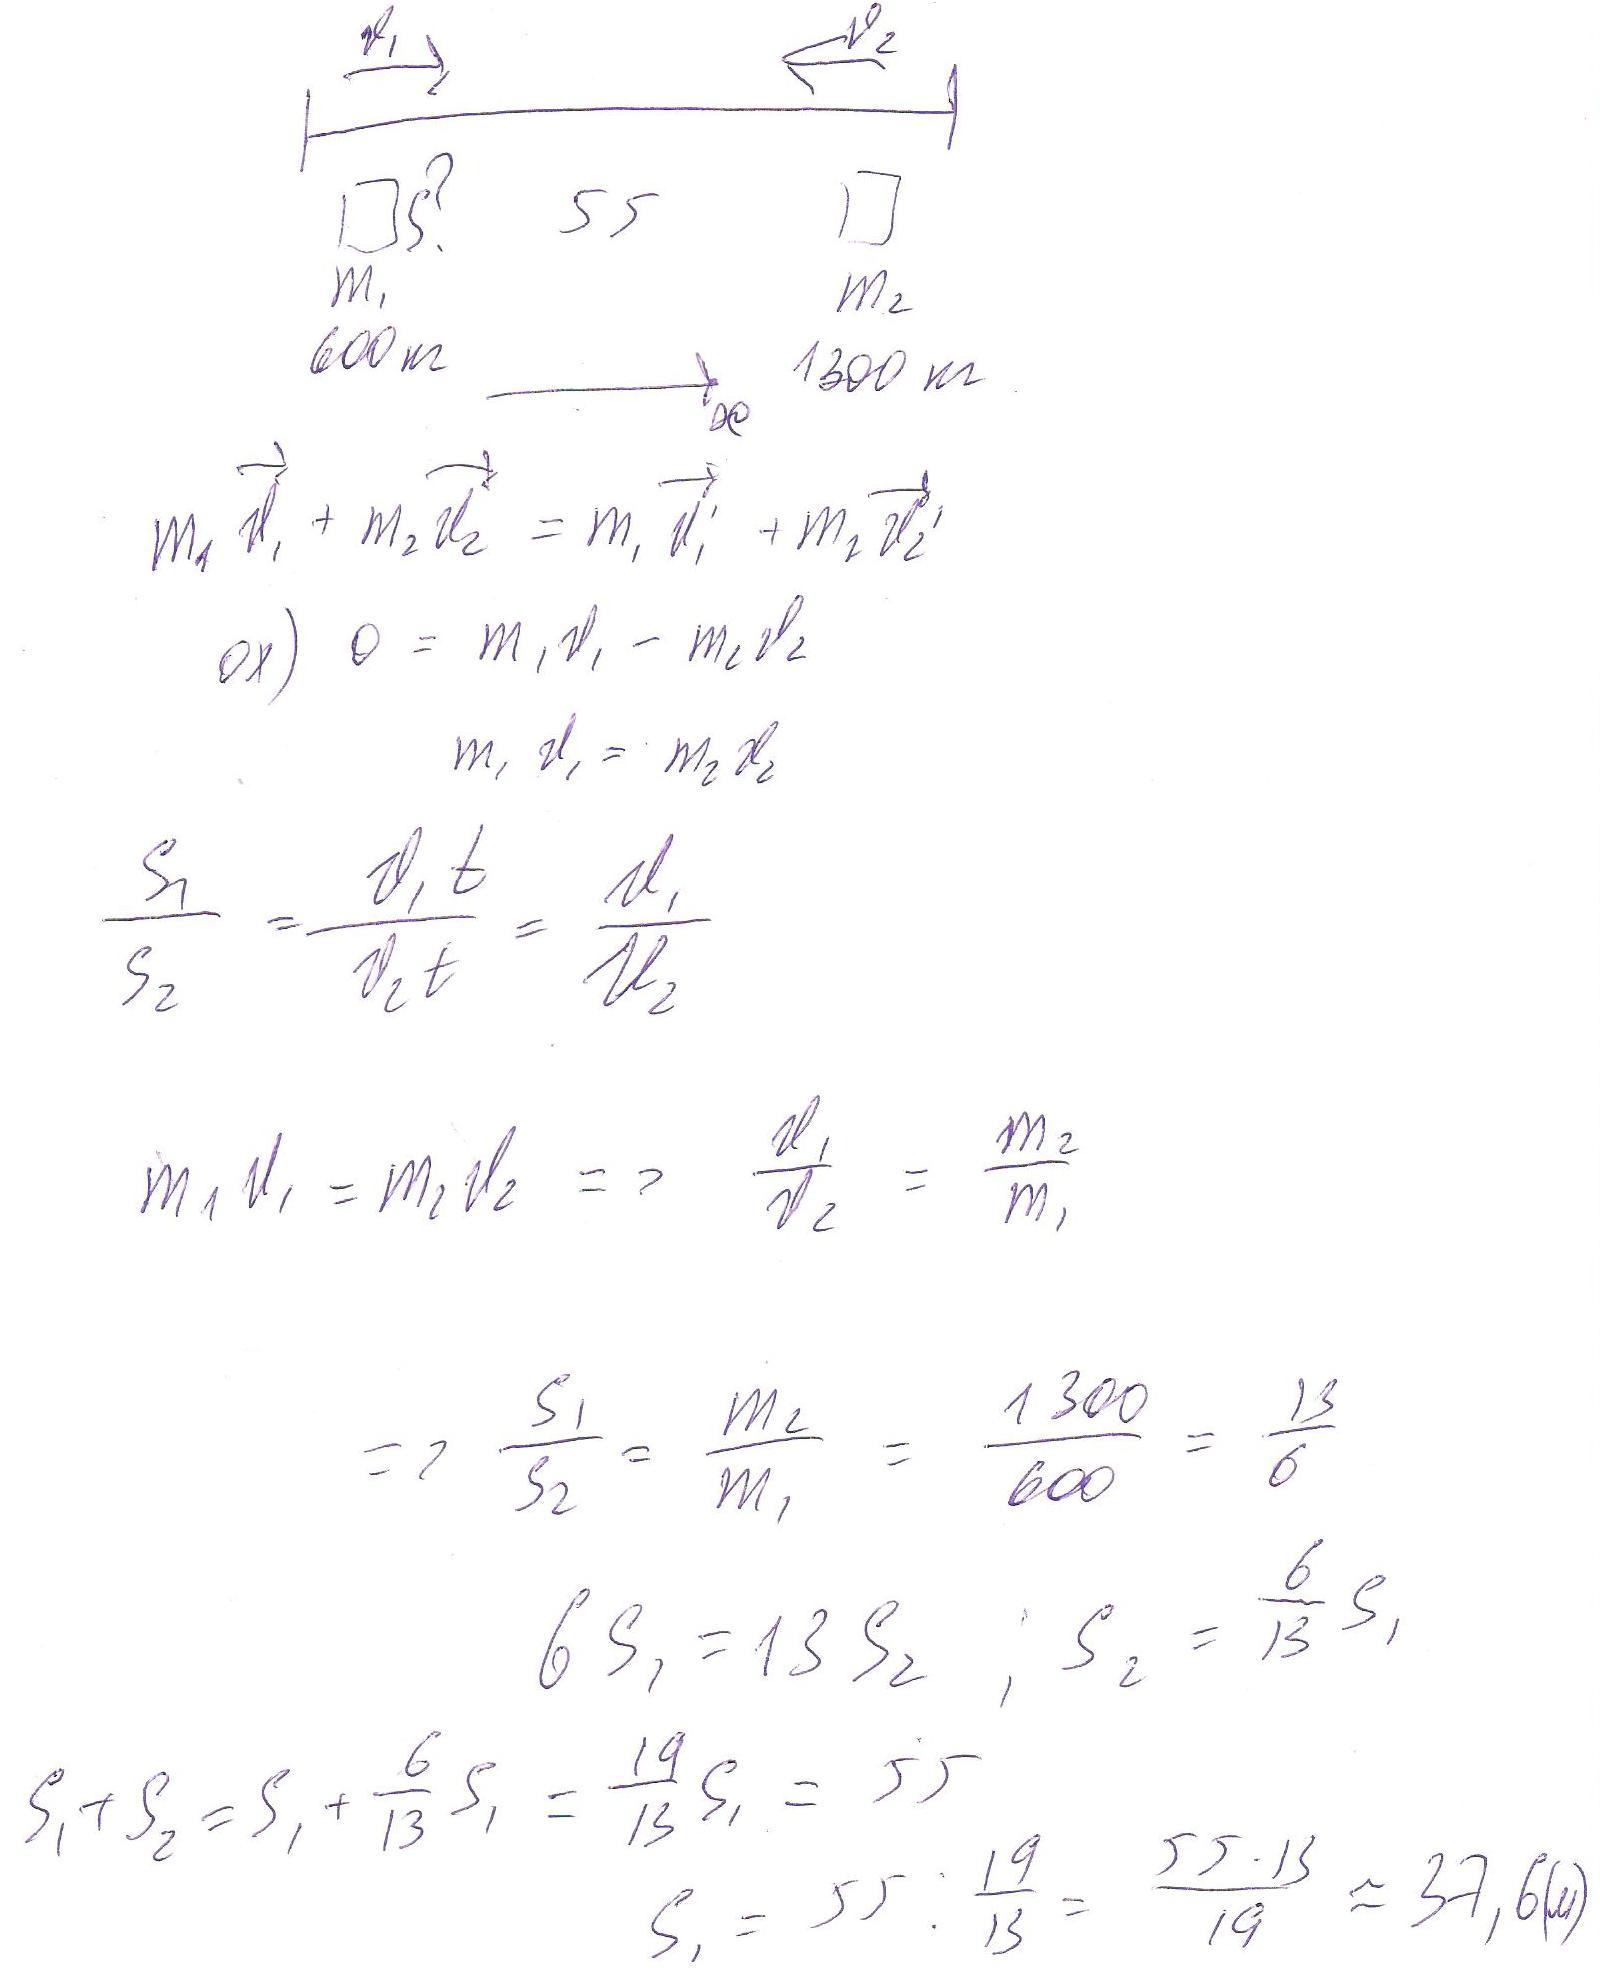 v₁ v₂
S? 55
m₁ m₂
600 кг 1300 кг
x
m₁v⃗₁ + m₂v⃗₂ = m₁v⃗₁' + m₂v⃗₂'
ox) 0 = m₁v₁ - m₂v₂
m₁v₁ = m₂v₂
S₁/S₂ = v₁t/v₂t = v₁/v₂
m₁v₁ = m₂v₂ => v₁/v₂ = m₂/m₁
=> S₁/S₂ = m₂/m₁ = 1300/600 = 13/6
6S₁ = 13S₂ ; S₂ = 6/13 S₁
S₁ + S₂ = S₁ + 6/13 S₁ = 19/13 S₁ = 55
S₁ = 55 : 19/13 = 55·13/19 ≈ 37,6(м)